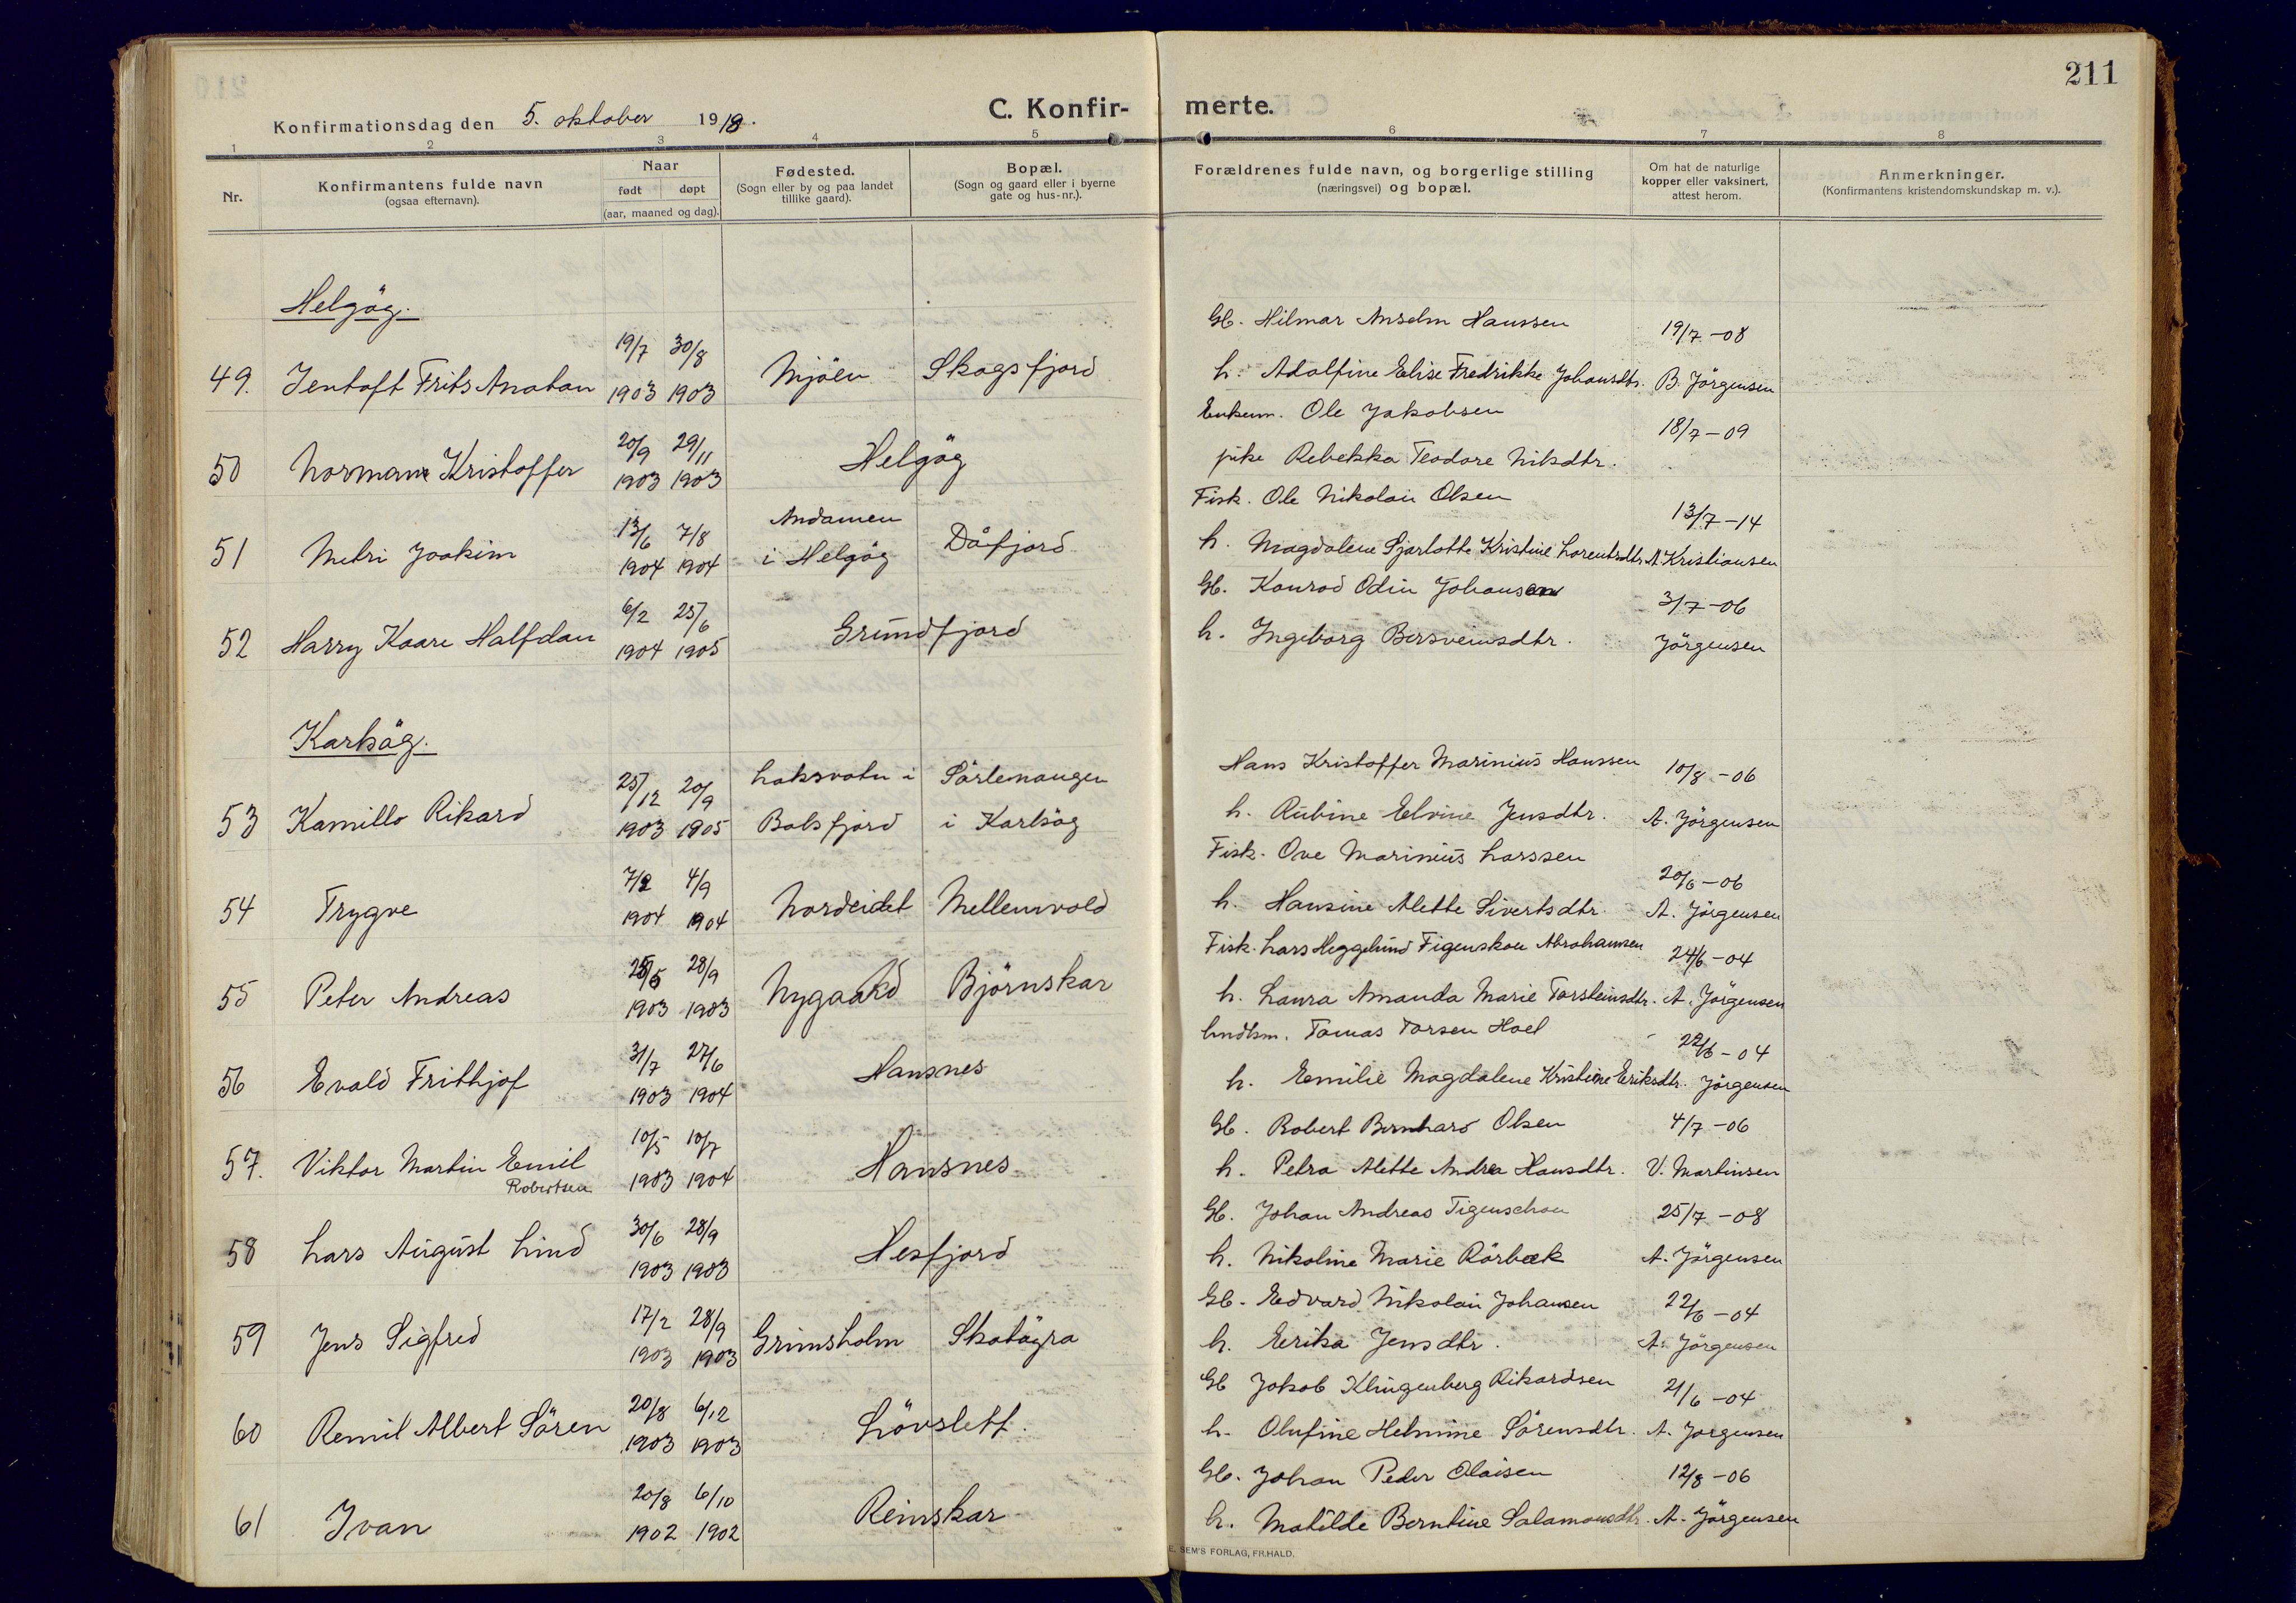 211
C. Konfir- merte.
Konfirmationsdag den 5. oktober 1918.
1 2 3 4 5 6 7 8
Nr.
Konfirmantens fulde navn
(ogsaa efternavn).
Naar
født døpt
(aar, maaned og dag).
Fødested.
(Sogn eller by og paa landet
tillike gaard).
Bopæl.
(Sogn og gaard eller i byerne
gate og hus-nr.).
Forældrenes fulde navn, og borgerlige stilling
(næringsvei) og bopæl.
Om hat de naturlige
kopper eller vaksinert,
attest herom.
Anmerkninger.
(Konfirmantens kristendomskundskap m. v.).
Helgöy.
19/7 30/8 Gb. Hilmar Anselm Hanssen 19/7-08
49. Jentoft Frits Anatan 1903 1903 Mjölen Skogsfjord h. Adolfine Elise Fredrikke Johansdtr. B. Jörgensen
20/9 29/11 Enkem. Ole Jakobsen 18/7-09
50 Normann Kristoffer 1903 1903 Helgöy pike Rebekka Teodore Nilsdtr.
13/6 7/8 Andamen Fisk. Ole Nikolai Olsen 13/7-14
51 Metri Joakim 1904 1904 i Helgöy Dåfjord h. Magdalene Sjarlotte Kristine Lorentsdtr. A. Kristiansen
6/2 25/6 Gb. Konrad Odin Johansen 3/7-06
52 Harry Kaare Halfdan 1904 1905 Grundfjord h. Ingeborg Bersveinsdtr. Jörgensen
Karlsöy.
25/12 20/9 Laksvatn i Sörlenangen Hans Kristoffer Marinius Hanssen 10/8-06
53 Kamillo Rikard 1903 1905 Balsfjord i Karlsöy h. Rubine Elvine Jensdtr. A. Jörgensen
7/2 4/9 Fisk. Ove Marinius Larssen 20/6-06
54 Trygve 1904 1904 Nordeidet Mellemvold h. Hansine Alette Sivertsdtr. A. Jörgensen
25/5 28/9 Fisk. Lars Heggelund Figenskou Abrahamsen 24/6-04
55 Peter Andreas 1903 1903 Nygaard Björnskar h. Laura Amanda Marie Torsteinsdtr. A. Jörgensen
31/7 27/6 Lndhm. Tomas Torsen Hoel 22/6-04
56 Evald Frithjof 1903 1904 Hansnes h. Emilie Magdalene Kristine Eriksdtr. Jörgensen
10/5 10/7 Gb. Robert Bernhard Olsen 4/7-06
57. Viktor Martin Emil 1903 1904 Hansnes h. Petra Alette Andrea Hansdtr. V. Martinsen
Robertsen
30/6 28/9 Gb. Johan Andreas Figenschou 25/7-08
58 Lars August Lind 1903 1903 Hesfjord h. Nikoline Marie Rörbæk A. Jörgensen
17/2 28/9 Gb. Edvard Nikolai Johansen 22/6-04
59 Jens Sigfred 1903 1903 Grimsholm Skatöyra h. Erika Jensdtr. A. Jörgensen
20/8 6/12 Gb Jakob Klingenberg Rikardsen 21/6-04
60 Remil Albert Sören 1903 1903 Lövslett. h. Olufine Helmine Sörensdtr. A. Jörgensen
20/8 6/10 Gb. Johan Peder Olaisen 12/8-06
61 Ivan 1902 1902 Reinskar h. Matilde Berntine Salamonsdtr. A. Jörgensen
E. SEM'S FORLAG, FR.HALD.